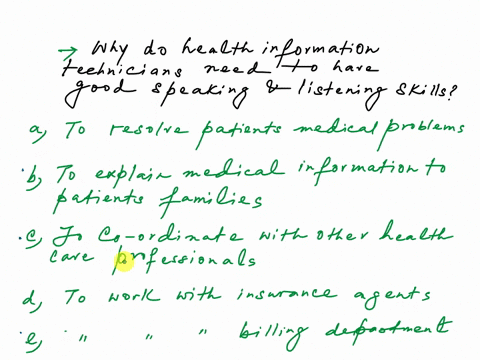 → Why do health information
technicians need to have
good speaking & listening skills?
a, To resolve patients medical problems
b, To explain medical information to
patients families
c, To Co-ordinate with other health
care professionals
d, To work with insurance agents
e, " " " billing department